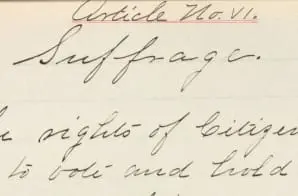 Article No. VI.
Suffrage.
rights of Citizen
to vote and hold